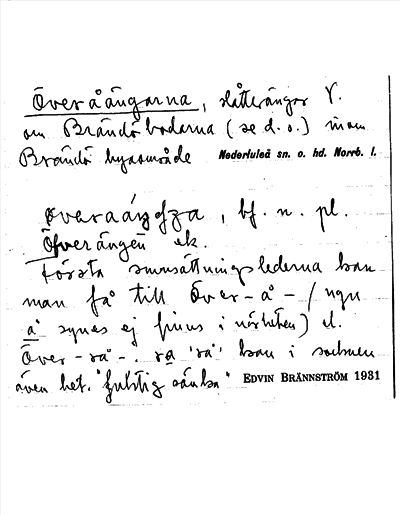 Överåängarna, slåtterängar V.
om Brändöbodarna (se d. o.) inom
Brändö byområde Nederluleå sn. o. hd. Norrb. l.
bf. n. pl.
Öfverängen ek.
Första smnsättningslederna kan
man få till Över-å- (ngn
å synes ej finns i närheten) el.
Över-rå-. ra 'rå' kan i socknen
även bet. "fuktig sänka" EDVIN BRÄNNSTRÖM 1931